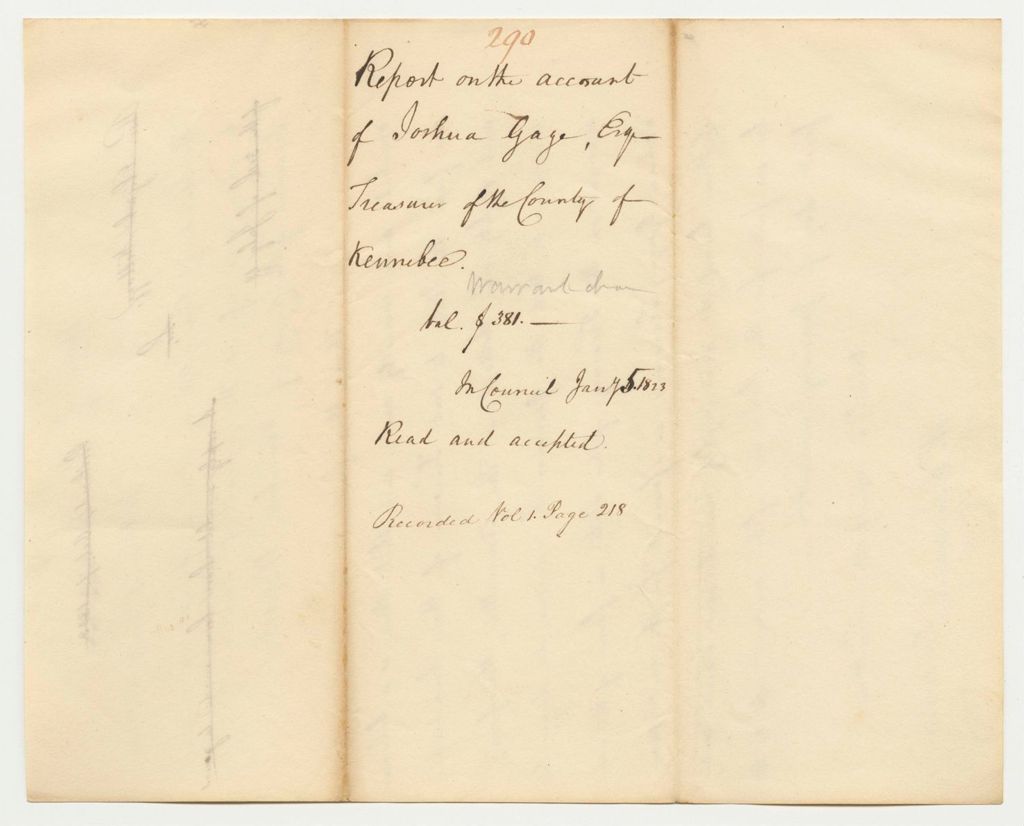 290
Report on the account
of Joshua Gage, Esq
Treasurer of the County of
Kennebec.
Warrant drawn
bal. $381.—
In Council Jany 5. 1823
Read and accepted.
Recorded Vol 1. Page 218